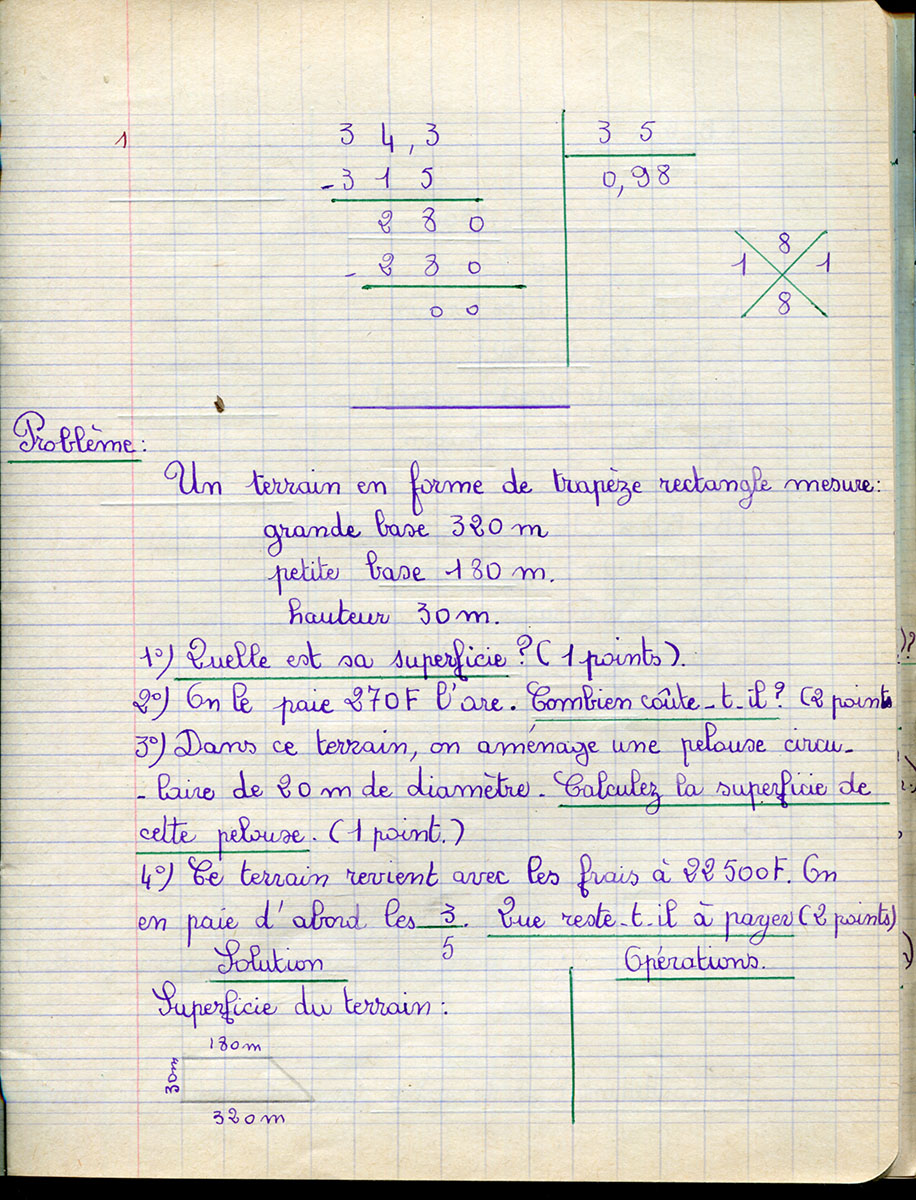 1
3 4,3 3 5
-3 1 5 0,98
2 8 0
8
1 1
- 2 8 0
8
0 0
Problème:
Un terrain en forme de trapèze rectangle mesure:
grande base 320 m
petite base 180 m.
hauteur 30 m.
1°) Quelle est sa superficie? (1 points).
2°) On le paie 270F l'are. Combien coûte-t-il? (2 points
3°) Dans ce terrain, on aménage une pelouse circu-
-laire de 20 m de diamètre. Calculez la superficie de
cette pelouse. (1 point.)
4°) Ce terrain revient avec les frais à 22 500F. On
en paie d'abord les 3/5. Que reste-t-il à payer (2 points)
Solution Opérations.
Superficie du terrain:
180m
30m
320 m